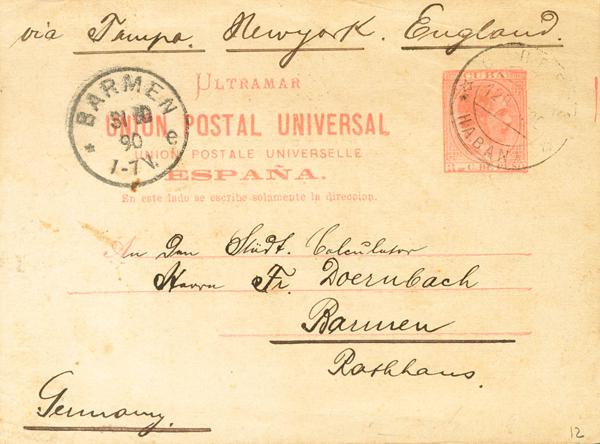 via Tampa. Newyork. England.
ULTRAMAR
UNION POSTAL UNIVERSAL
UNION POSTALE UNIVERSELLE
ESPAÑA.
En este lado se escribe solamente la direccion.
* BARMEN * e
90
1-7V.
CUBA
HABANA
An Den Städt. Calculator
Herrn Fr. Doernbach
Barmen
Rathhaus.
Germany.
12